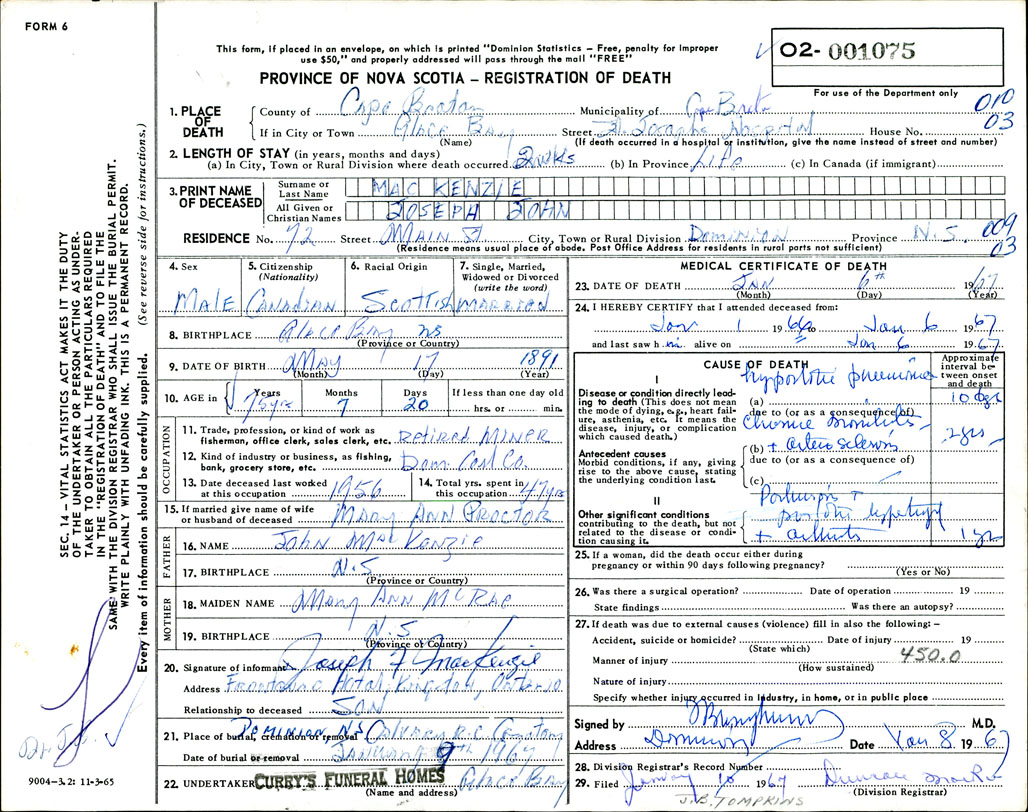 FORM 6
This form, if placed in an envelope, on which is printed "Dominion Statistics – Free, penalty for improper
use $50," and properly addressed will pass through the mail "FREE"
O2- 001075
PROVINCE OF NOVA SCOTIA – REGISTRATION OF DEATH
For use of the Department only
010
03
1. PLACE OF DEATH
County of Cape Breton Municipality of Cape Breton
If in City or Town Glace Bay Street St. Josephs Hospital House No.
(Name) (If death occurred in a hospital or institution, give the name instead of street and number)
2. LENGTH OF STAY (in years, months and days)
(a) In City, Town or Rural Division where death occurred 2 wks (b) In Province Life (c) In Canada (if immigrant)
3. PRINT NAME OF DECEASED
Surname or Last Name MAC KENZIE
All Given or Christian Names JOSEPH JOHN
RESIDENCE No. 72 Street MAIN ST City, Town or Rural Division DOMINION Province N.S.
009
03
(Residence means usual place of abode. Post Office Address for residents in rural ports not sufficient)
4. Sex
MALE
5. Citizenship
(Nationality)
CANADIAN
6. Racial Origin
Scottish
7. Single, Married,
Widowed or Divorced
(write the word)
MARRIED
8. BIRTHPLACE Glace Bay NS
(Province or Country)
9. DATE OF BIRTH MAY 17 1891
(Month) (Day) (Year)
10. AGE in Years Months Days If less than one day old
75 yrs 7 20 hrs. or min.
OCCUPATION
11. Trade, profession, or kind of work as
fisherman, office clerk, sales clerk, etc. Retired MINER
12. Kind of industry or business, as fishing,
bank, grocery store, etc. Dom Coal Co.
13. Date deceased last worked
at this occupation 1956
14. Total yrs. spent in
this occupation 47 yrs
15. If married give name of wife
or husband of deceased MARY ANN PROCTOR
FATHER
16. NAME John MacKenzie
17. BIRTHPLACE N.S
(Province or Country)
MOTHER
18. MAIDEN NAME Mary Ann McRae
19. BIRTHPLACE N.S
(Province or Country)
20. Signature of informant Joseph F MacKenzie
Address Frontenac Hotel, Kingston, Ontario
Relationship to deceased SON
21. Place of burial, cremation or removal DOMINION N.S Calvary R.C. Cemetary
Date of burial or removal January 9th 1967
22. UNDERTAKER CURRY'S FUNERAL HOMES Glace Bay
(Name and address)
MEDICAL CERTIFICATE OF DEATH
23. DATE OF DEATH JAN 6th 1967
(Month) (Day) (Year)
24. I HEREBY CERTIFY that I attended deceased from:
Jan 1 1966 to Jan 6 1967
and last saw him alive on Jan 6 1967.
CAUSE OF DEATH
Approximate
interval be-
tween onset
and death
I
Disease or condition directly lead-
ing to death (This does not mean
the mode of dying, e.g., heart fail-
ure, asthenia, etc. it means the
disease, injury, or complication
which caused death.)
hypostatic pneumonia
(a) 10 dys
due to (or as a consequence of)
Chronic bronchitis
Antecedent causes
Morbid conditions, if any, giving
rise to the above cause, stating
the underlying condition last.
(b) + arterio sclerosis 2 yrs
due to (or as a consequence of)
(c)
II
Other significant conditions
contributing to the death, but not
related to the disease or condi-
tion causing it.
+ arthritis 1 yr
25. If a woman, did the death occur either during
pregnancy or within 90 days following pregnancy?
(Yes or No)
26. Was there a surgical operation? Date of operation 19
State findings Was there an autopsy?
27. If death was due to external causes (violence) fill in also the following: –
Accident, suicide or homicide? Date of injury 19
(State which)
Manner of injury 450.0
(How sustained)
Nature of injury
Specify whether injury occurred in Industry, in home, or in public place
Signed by M.D.
Address Dominion Date Jan 8 1967
28. Division Registrar's Record Number
29. Filed January 10 1967
(Division Registrar)
J.B. TOMPKINS
SEC. 14 – VITAL STATISTICS ACT MAKES IT THE DUTY
OF THE UNDERTAKER OR PERSON ACTING AS UNDER-
TAKER TO OBTAIN ALL THE PARTICULARS REQUIRED
IN THE "REGISTRATION OF DEATH" AND TO FILE THE
SAME WITH THE DIVISION REGISTRAR WHO SHALL ISSUE THE BURIAL PERMIT.
WRITE PLAINLY WITH UNFADING INK. THIS IS A PERMANENT RECORD.
Every item of information should be carefully supplied. (See reverse side for instructions.)
9004–3.2: 11-3-65